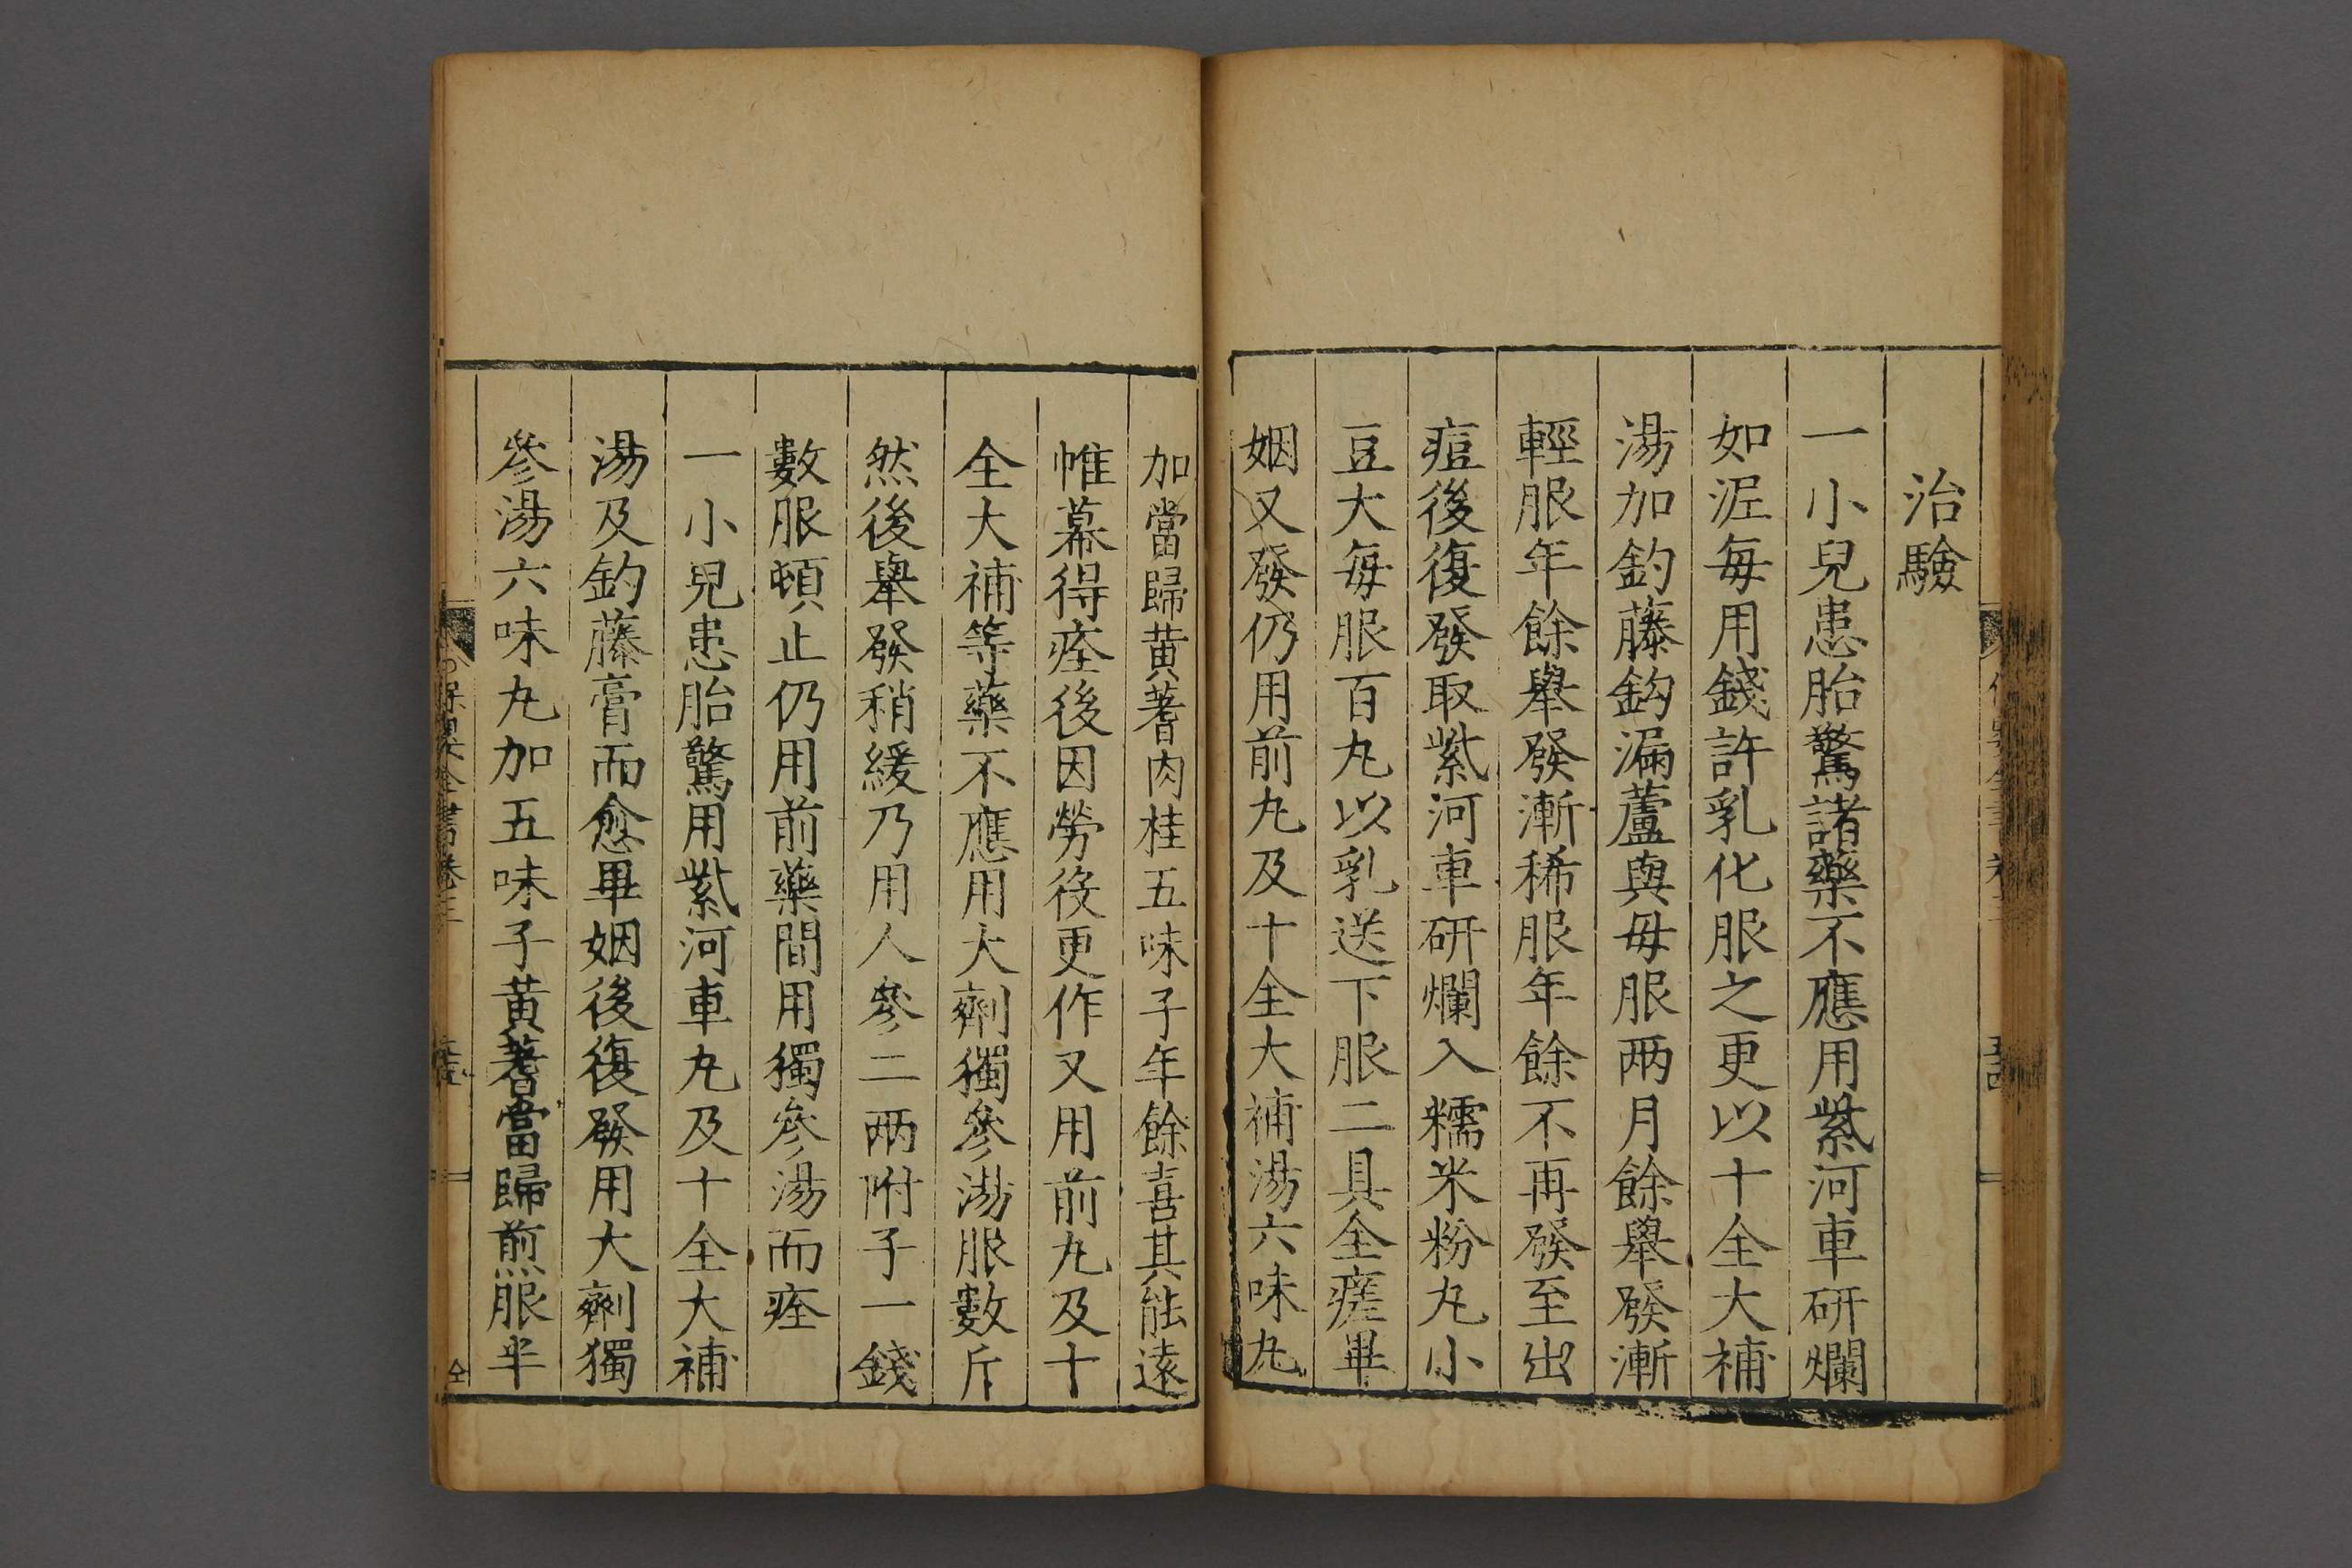 治驗
一小兒患胎驚諸藥不應用紫河車研爛
如泥每用錢許乳化服之更以十全大補
湯加釣藤鈎漏蘆與母服两月餘舉發漸
輕服年餘舉發漸稀服年餘不再發至出
痘後復發取紫河車研爛入糯米粉丸小
豆大每服百丸以乳送下服二具全瘥畢
姻又發仍用前丸及十全大補湯六味丸
加當歸黄蓍肉桂五味子年餘喜其能遠
帷幕得痊後因勞役更作又用前丸及十
全大補等藥不應用大劑獨參湯服數斤
然後舉發稍緩乃用人參二两附子一錢
數服頓止仍用前藥間用獨參湯而痊
一小兒患胎驚用紫河車丸及十全大補
湯及釣藤膏而愈畢姻後復發用大劑獨
參湯六味丸加五味子黄蓍當歸煎服半
保嬰全書卷三